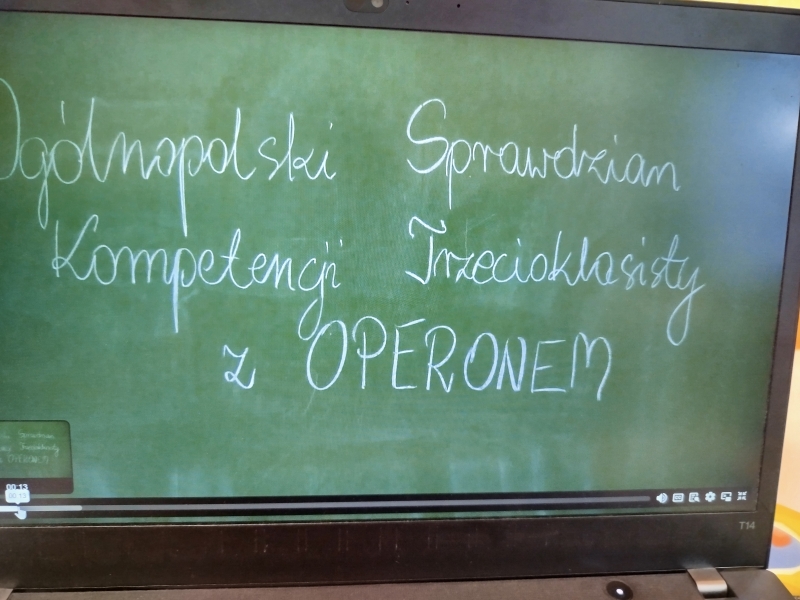 Ogólnopolski Sprawdzian
Kompetencji Trzecioklasisty
z OPERONEM
00:13
00:13
T14